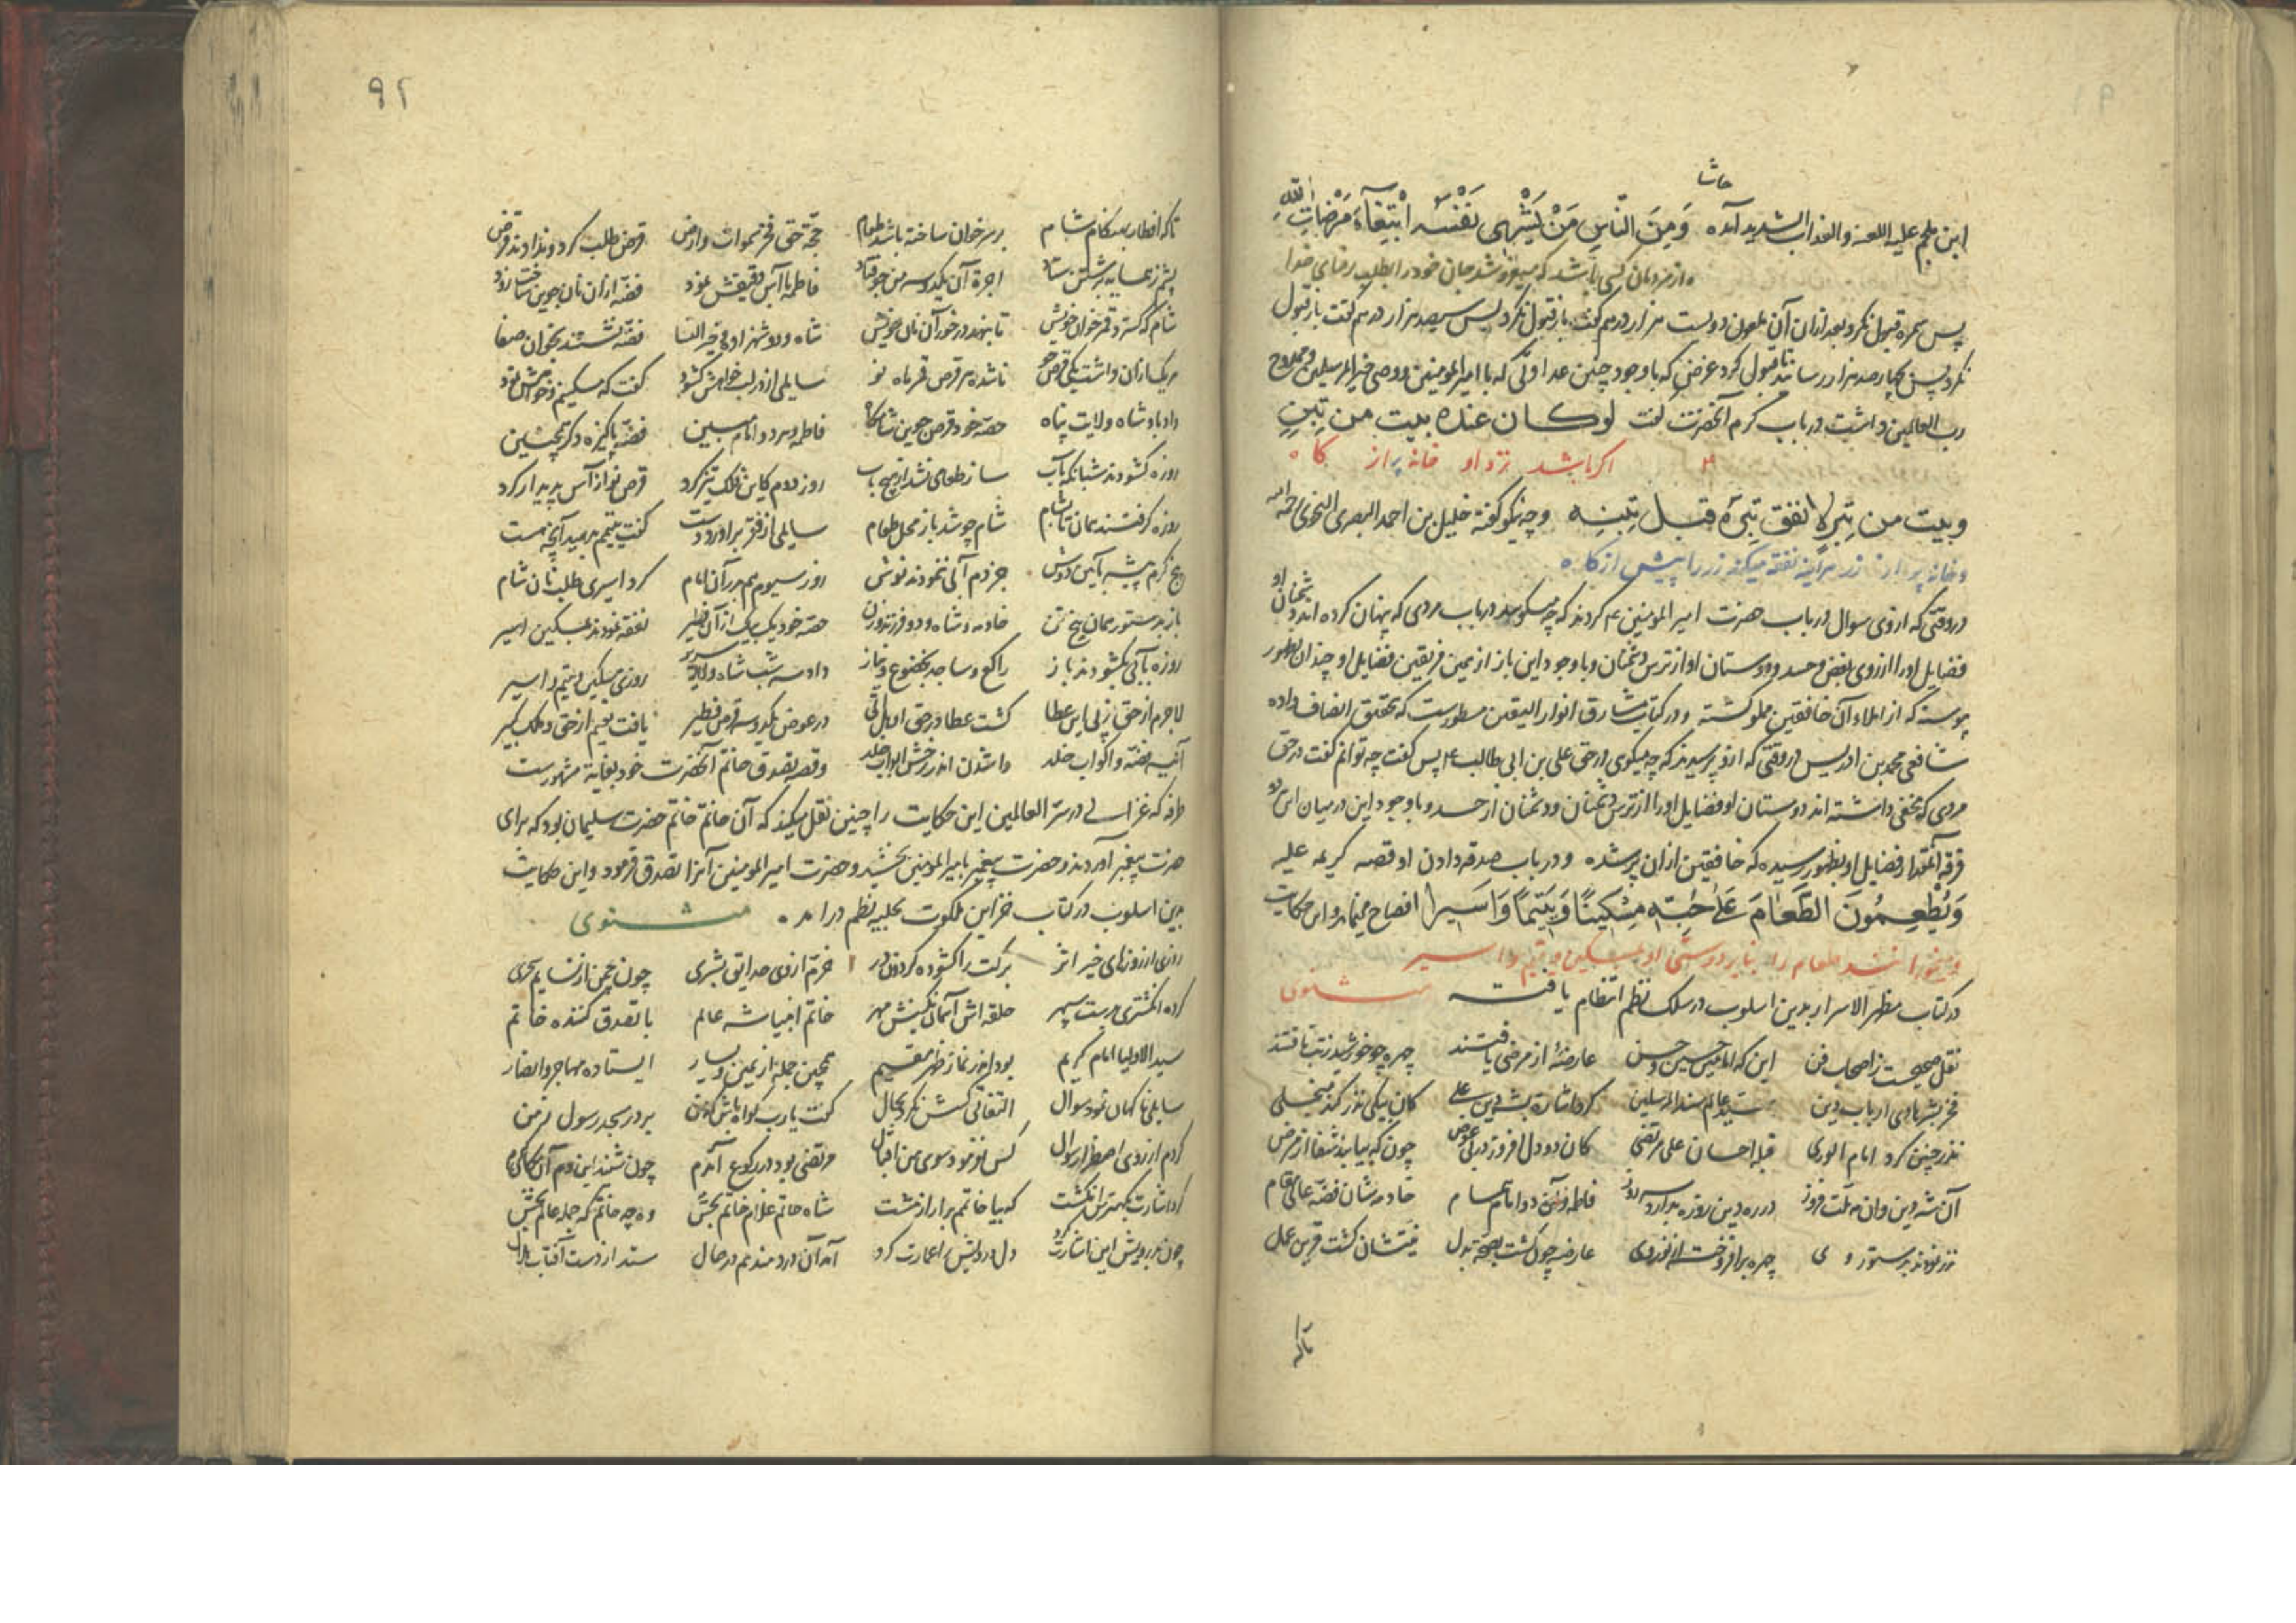 حاشا
ابن ملجم علیه اللعنه والعذاب الشدید آمده وَمِنَ النَّاسِ مَنْ یَشْرِی نَفْسَهُ ابْتِغَآءَ مَرْضَاتِ اللّهِ
و از مردمان کسی باشد که میفروشد جان خود را بطلب رضای خدا
پس سمره قبول نکرد و بعد از ان آن ملعون دویست هزار درهم گفت باز قبول نکرد پس سیصد هزار درهم گفت باز قبول
نکرد پس چهار صد هزار رسانید تا قبول کرد غرض که باوجود چنین عداوتی که با امیر المومنین و وصی خیر المرسلین و ممدوح
رب العالمین داشت در باب کرم آنحضرت گفت لو کان عنده بیت من تِبنٍ
اکر باشد نزد او خانه پر از کاه
و بیت من تِبرٍ لا نفق تِبرَه قبل تِبنِه و چه نیکو گفته خلیل بن احمد البصری النحوی رحمه الله
و خانه پر از زر هراینه نفقه میکند زر را پیش از کاه
در وقتی که از وی سوال در باب حضرت امیر المومنین ع کردند که چه میکویی در باب مردی که پنهان کرده اند دشمنان او
فضایل او را از روی بغض و حسد و دوستان او از ترس دشمنان و با وجود این باز از همین فریقین فضایل او چندان بظهور
پیوسته که از املاء آن خافقین مملو کشته و در کتاب مشارق انوار الیقین مسطورست که تحقیق انصاف داده
شافعی محمد بن ادریس در وقتی که ازو پرسیدند که چه میکوی در حق علی بن ابی طالب ع پس کفت چه توانم کفت در حق
مردی که مخفی داشته اند دوستان او فضایل او را از ترس دشمنان و دشمنان از حسد و با وجود این در میان این دو
فرقه آنقدر از فضایل او بظهور رسیده که خافقین از ان پر شده و در باب صدقه دادن او قصه کریمه علیه
وَیُطْعِمُونَ الطَّعَامَ عَلَی حُبِّهِ مِسْکِینًا وَیَتِیمًا وَاَسِیرا افصاح مینماید و این حکایت
و میخورانند طعام را بنابر دوستی او بمسکین و یتیم و اسیر
در کتاب مظهر الاسرار بدین اسلوب در سلک نظم انتظام یافته مثنوی
نقل صحیحست ز اصحاب فن این که امامین حسین و حسن عارضهٔ از مرضی یافتند چهره چو خورشید ز تب تافتند
فخر بشر هادی ارباب دین سید عالم سند المرسلین کرد اشارت بشه دین علی کان بیکی نذر کند منجلی
نذر چنین کرد امام الوری قبله احسان علی مرتضی کان دو دل افروز در بی عوض چون که بیابند شفا از مرض
آن شه دین وان مه ملت فروز در ره دین روزه بدارد سه روز فاطمه و آن دو امام تمام خادمه شان فضّه عالی مقام
نذر نمودند بدستور وی چهره برافروخت از نذر وی عارضه چون کشت بصحت بدل نیتشان کشت قرین عمل
تا که
۹۲
تا که افطار بهنکام شام بر سر خوان ساخته باشد طعام حجّة حق فخر سموات و ارض قرض طلب کرد و ندادند قرض
شام که کسترد قمر خوان خویش تا بنهد در خور آن نان خویش شاه و دو شهزاده و خیر النسا فضّه نشستند بخوان صفا
هر یک از ان داشت یکی قرص جو ناشده هر قرص قمر ماه نو سایلی از در لب خواهش کشود کفت که مسکینم و خواهش نمود
داد باو شاه ولایت پناه حصّه خود قرص جوین شامگاه فاطمه و هر دو امام مبین فضّه پاکیزه دکر همچنین
روزه کشودند شبانکه بآب ساز طعامی نشد از هیچ باب روز دوم کاین فلک تیز کرد قرص خور از آس پدیدار کرد
روزه کرفتند همان تا بشام شام چو شد باز محل طعام سایلی از فقر براورد دست کفت یتیمم بدهید آنچه هست
پنج کرم پیشه بآیین دوش جز دم آبی ننمودند نوش روز سیوم هم بدر آن امام کرد اسیری طلب نان شام
باز بدستور همان پنج تن خادمه و شاه و دو فرزند و زن حصّه خود یک بیک از آن فطیر نفقه نمودند بمسکین اسیر
روزه بآبی بکشودند باز راکع و ساجد بخضوع و نیاز داد سه شب شاه ولایت سریر روزی مسکین و یتیم و اسیر
لاجرم از حق ز پی این عطا کشت عطا در حق او هل اتی در عوض یکدو سه قرص فطیر یافت نعیم از حق و ملک کبیر
آنیه فضّه و اکواب خلد واشدن اندر رخش ابواب خلد و قصه تصدق خاتم آنحضرت خود بغایة مشهورست
طرفه که غزالی در سرّ العالمین این حکایت را چنین نقل میکند که آن خاتم خاتم حضرت سلیمان بود که برای
حضرت پیغمبر آوردند و حضرت پیغمبر بامیر المومنین بخشید و حضرت امیر المومنین آنرا تصدق فرمود و این حکایت
بدین اسلوب در کتاب خزاین ملکوت بحلیه نظم در امده مثنوی
روزی از روزهای خیر اثر برکت را کشوده کردون در خرّم از وی حدایق بشری چون چمن از نسایم سحری
کرده انکشتری بدست سپهر حلقه اش آسمان نکینش مهر خاتم انبیا شه عالم با تصدق کننده خاتم
سید الاولیا امام کریم بود اندر نماز ظهر مقیم همچنین جمله از یمین و یسار ایستاده مهاجر و انصار
سایلی ناکهان نمود سوال التفاتی کسش نکرد بحال کفت یارب کواه باش که من بر در مسجد رسول زمن
کردم از روی اضطرار سوال کس ننمود سوی من اقبال مرتضی بود در رکوع آندم چون شنید این دم آن
کرد اشارت بکهترین انکشت که بیا خاتمم برار از مشت شاه حاتم غلام خاتم بخش وه چه خاتم که جمله عالم بخش
چون بدرویش این اشارت کرد دل درویش را عمارت کرد آمد آن دردمند هم در حال ستد از دست آفتاب هلال